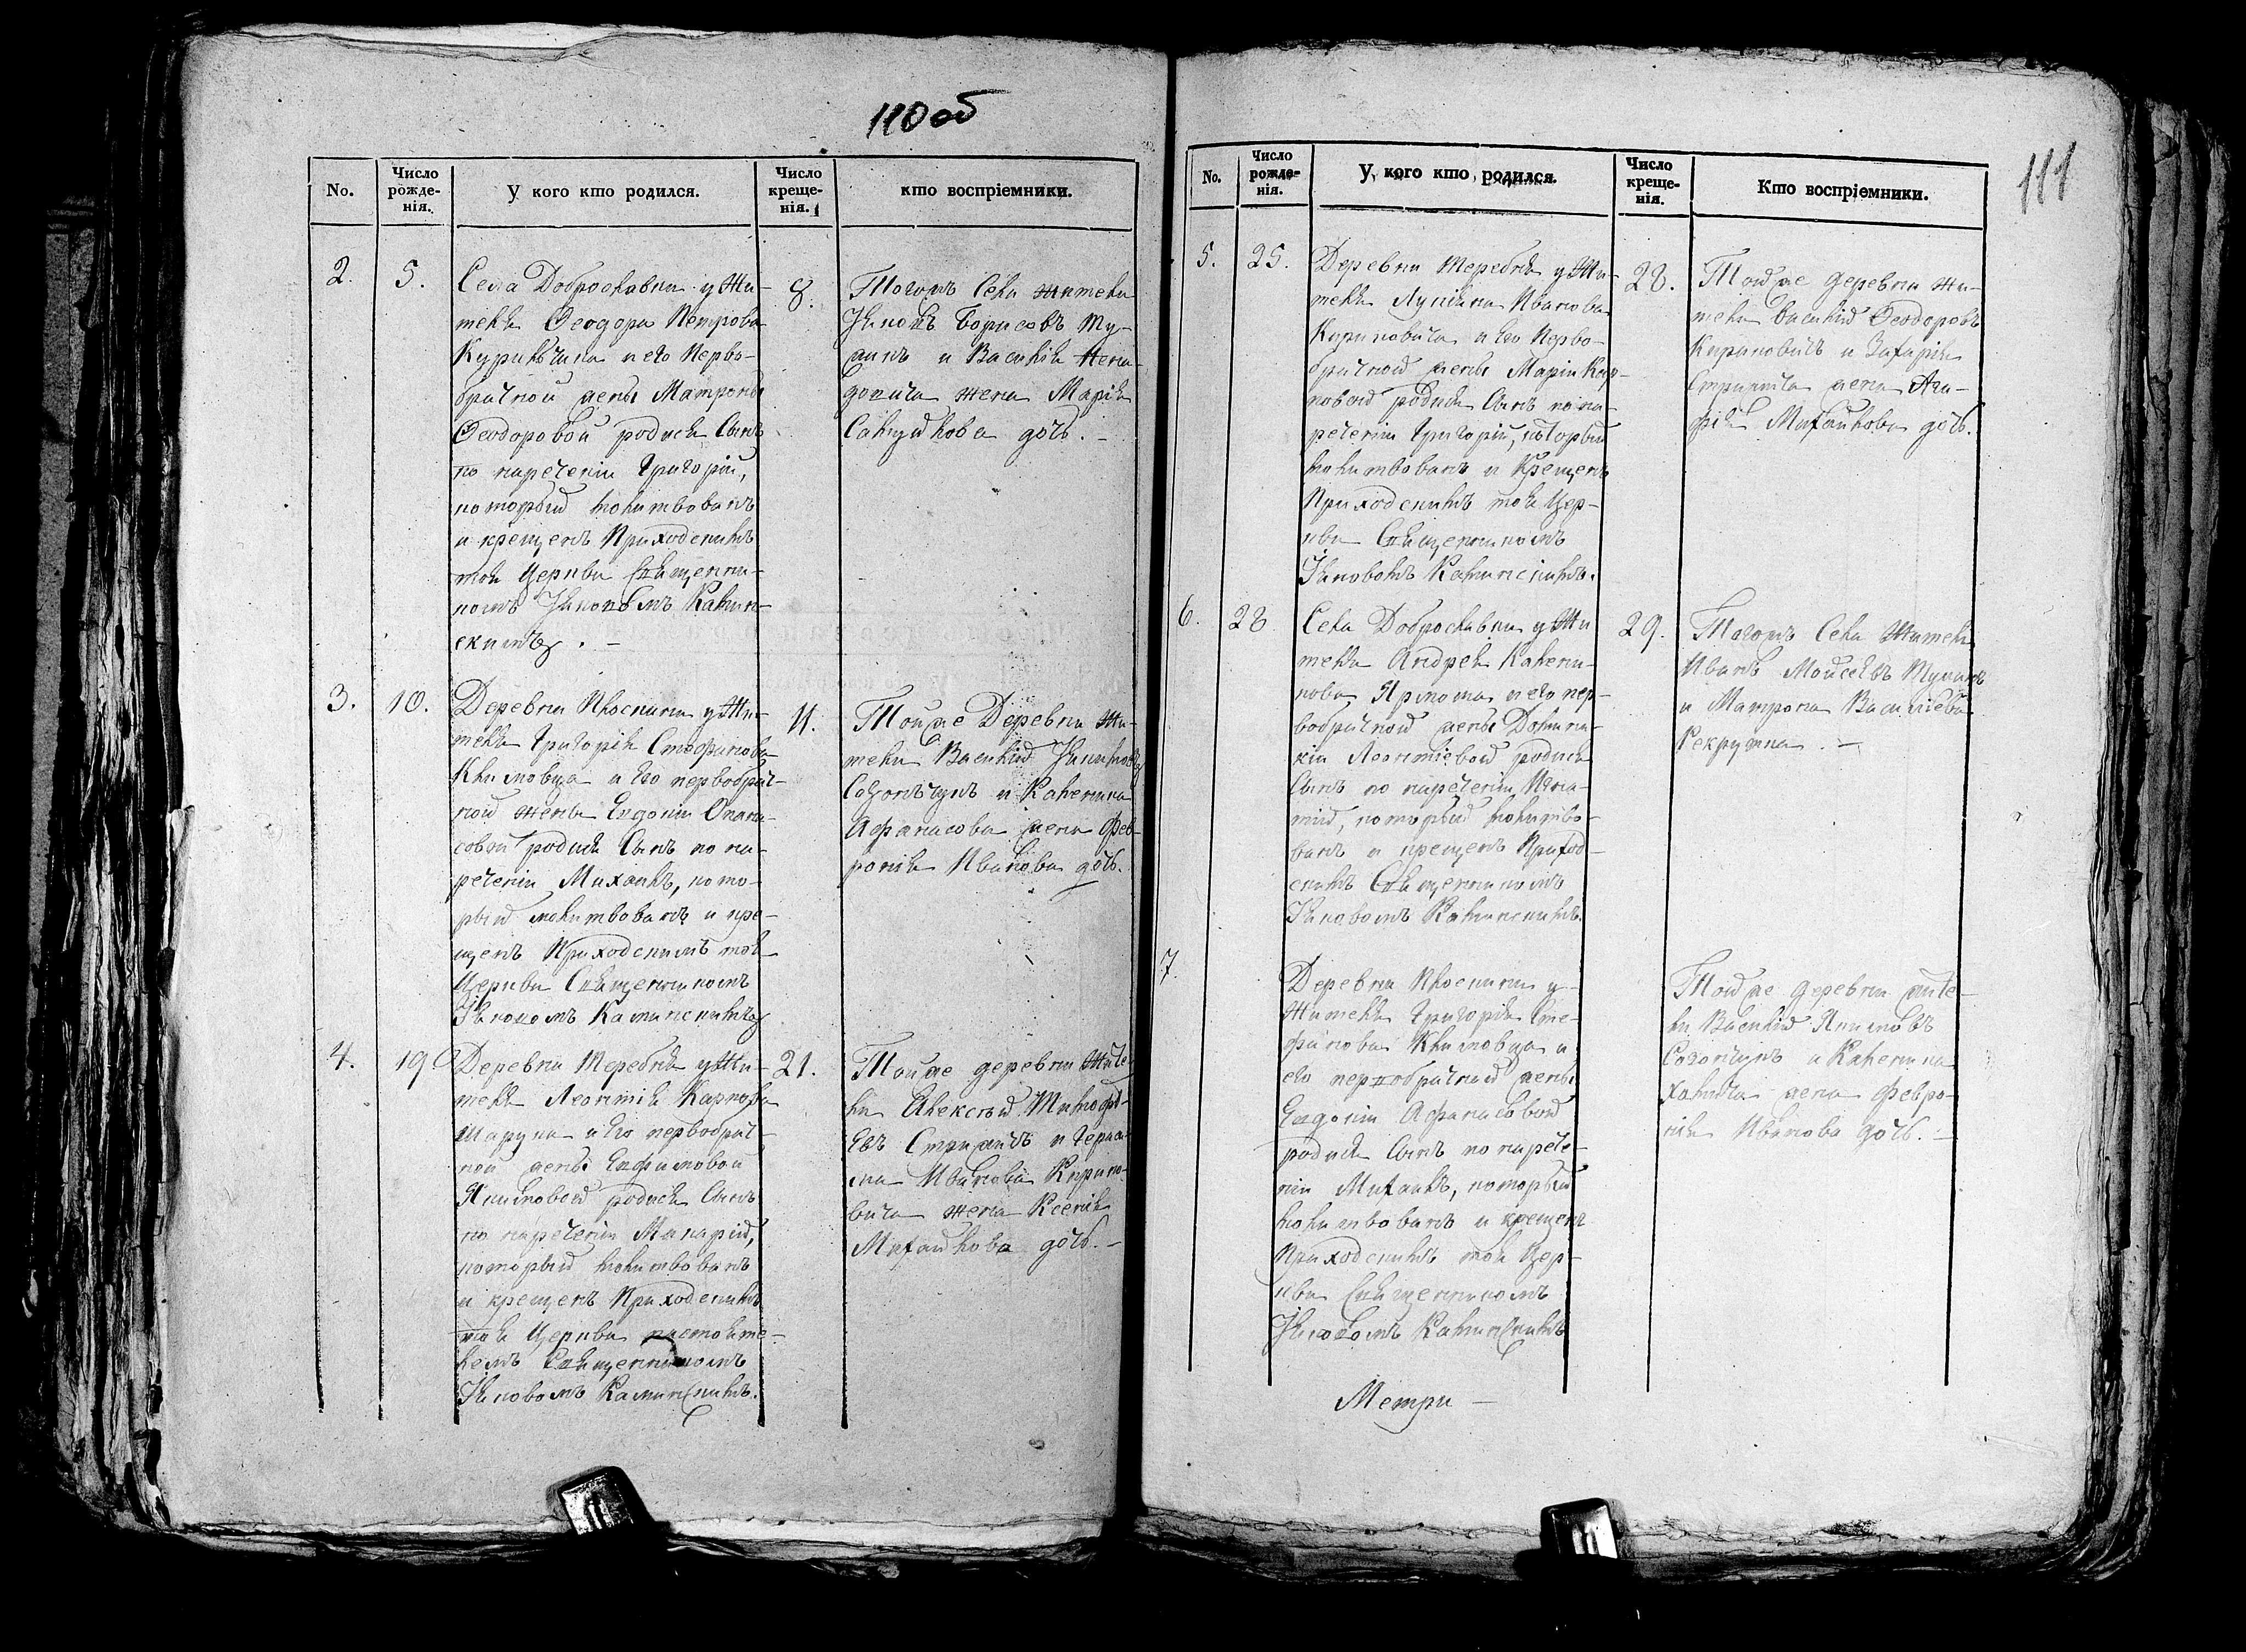 110 об
No.
Число рожде-нія.
У кого кто родился.
Число креще-нія.
кто воспріемники.
2.
5.
Села Доброславки у Жи-
теля Ѳеодора Петрова
Курильчика и его Перво-
брачной жены Матроны
Ѳеодоровой родися Сынъ
по наречении Григорій,
который молитвованъ
и крещенъ Приходскимъ
тоя Церкви Священни-
комъ Іяковомъ Камин-
скимъ. –
8.
Тогожъ Села жители
Іяковъ Борисовъ
и Василія
жена Марія
дочь. –
3.
10.
Деревни Плоскини у Жи-
теля Григорія Стефанова
Климовца и его первобрач-
ной жены Евдокіи Опана-
совой родися Сынъ по на-
речении Михаилъ, кото-
рый молитвованъ и кре-
щенъ Приходскимъ тоя
Церкви Священникомъ
Іяковомъ Каминскимъ
11.
Тойже Деревни Жи-
тели Василій Якимовъ
и Каленика
Афанасова жена Фев-
ронія Иванова дочь.
4.
19
Деревни Теребня у Жи-
теля Леонтія Карпова
и его первобрач-
ной жены Евфимовой
Якимовой родися Сынъ
по наречении Макарій,
который молитвованъ
и крещенъ Приходскимъ
тоя Церкви настояте-
лемъ Священникомъ
Іяковомъ Каминскимъ.
21.
Тойже деревни Жите-
ли Алексей Тимофе-
евъ Стрижичъ и Гераси-
ма Иванова Кирино-
вича жена Ксенія
Михайлова дочь. –
111
No.
Число рожде-нія.
У кого кто родился.
Число креще-нія.
Кто воспріемники.
5.
25.
Деревни Теребня у Жи-
теля Лукіана Иванова
Кириновича и его Перво-
брачной жены Маріи Кар-
повой родися Сынъ по на-
речении Григорій, который
молитвованъ и Крещенъ
Приходскимъ тоя Цер-
кви Священникомъ
Іяковомъ Каминскимъ.
28.
Тойже деревни жи-
тели Василій Ѳеодоровъ
Кириновичъ и Захарія
Стрижича жена Ага-
фія Михайлова дочь.
6.
28
Села Доброславки у Жи
теля Андрея Калени-
кова Ярмома и его пер-
вобрачной жены Домни-
кіи Леонтіевой родися
Сынъ по наречении Игна-
тій, который молитво-
ванъ и крещенъ Приход-
скимъ Священникомъ
Іяковомъ Каминскимъ.
29.
Тогожъ Села Жители
Иванъ Моисеевъ
и Матрона Василіева
Рекрутка. –
7.
Деревни Плоскини у
Жителя Григорія Сте-
фанова Климовца и
его первобрачной жены
Евдокіи Афанасьевой
родися Сынъ по нарече-
нии Михаилъ, который
молитвованъ и крещенъ
Приходскимъ тоя Цер-
кви Священникомъ
Іяковомъ Каминскимъ
Тойже деревни жите-
ли Василій Якимовъ
и Каленика
жена Февро-
нія Иванова дочь. –
Метри –